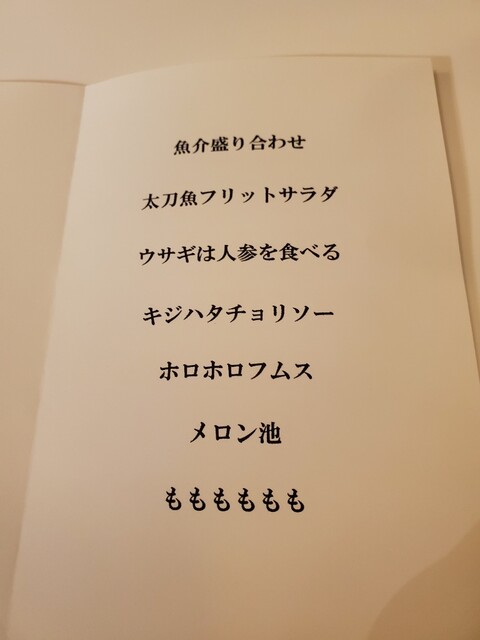 魚介盛り合わせ
太刀魚フリットサラダ
ウサギは人参を食べる
キジハタチョリソー
ホロホロフムス
メロン池
ももももももも